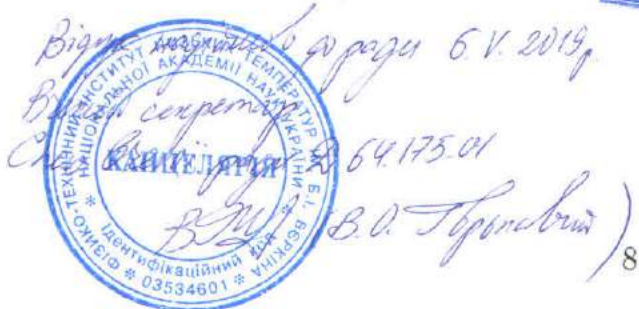 Відгук надійшов до ради 6.V.2019р.
Вчений секретар
Спец. вченої ради Д 64.175.01
В.О. Горькавий
8
ФІЗИКО-ТЕХНІЧНИЙ ІНСТИТУТ НИЗЬКИХ ТЕМПЕРАТУР ІМ. Б.І. ВЄРКІНА
НАЦІОНАЛЬНОЇ АКАДЕМІЇ НАУК УКРАЇНИ
КАНЦЕЛЯРІЯ
Ідентифікаційний код
03534601